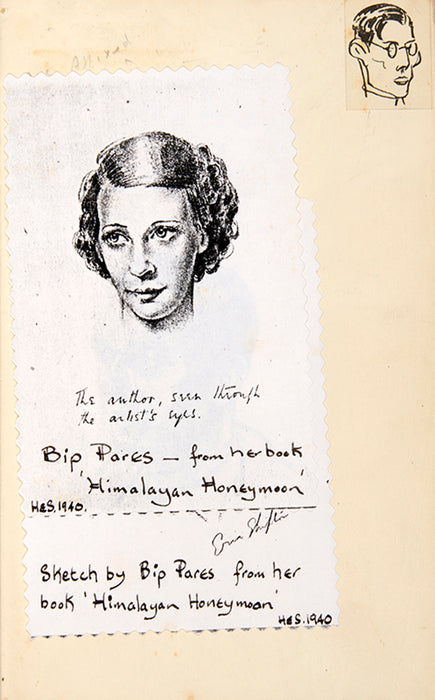 Affixed
The author, seen through
the artist's eyes.
Bip Pares — from her book
'Himalayan Honeymoon'
H&S. 1940.
Sketch by Bip Pares from her
book 'Himalayan Honeymoon'
H&S. 1940